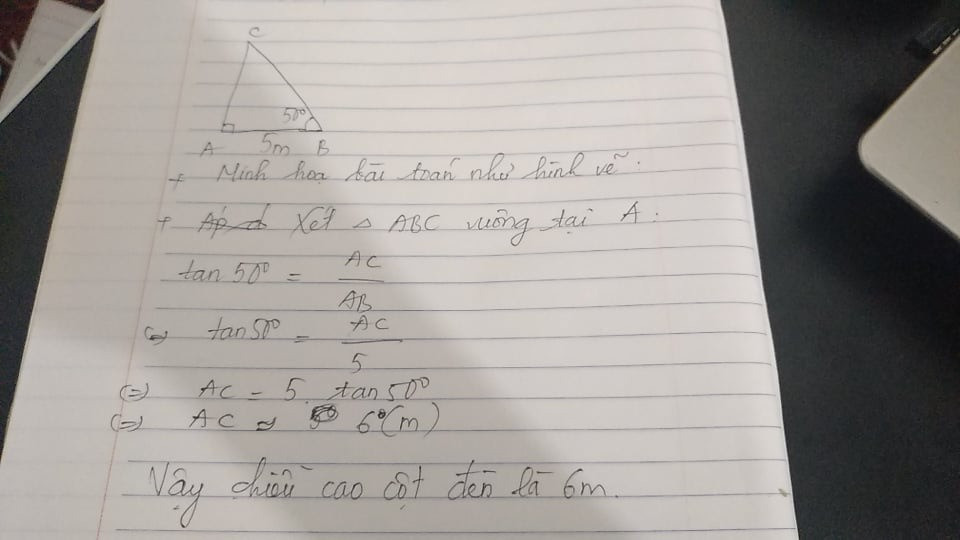 C
50°
A 5m B
+ Minh hoạ bài toán như hình vẽ:
+ Xét △ ABC vuông tại A:
tan 50° = AC / AB
(=) tan 50° = AC / 5
(=) AC = 5. tan 50°
(=) AC ≈ 6 (m)
Vậy chiều cao cột đèn là 6m.